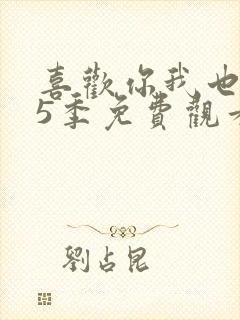 喜歡你我也
5季免費觀看
劉占昆